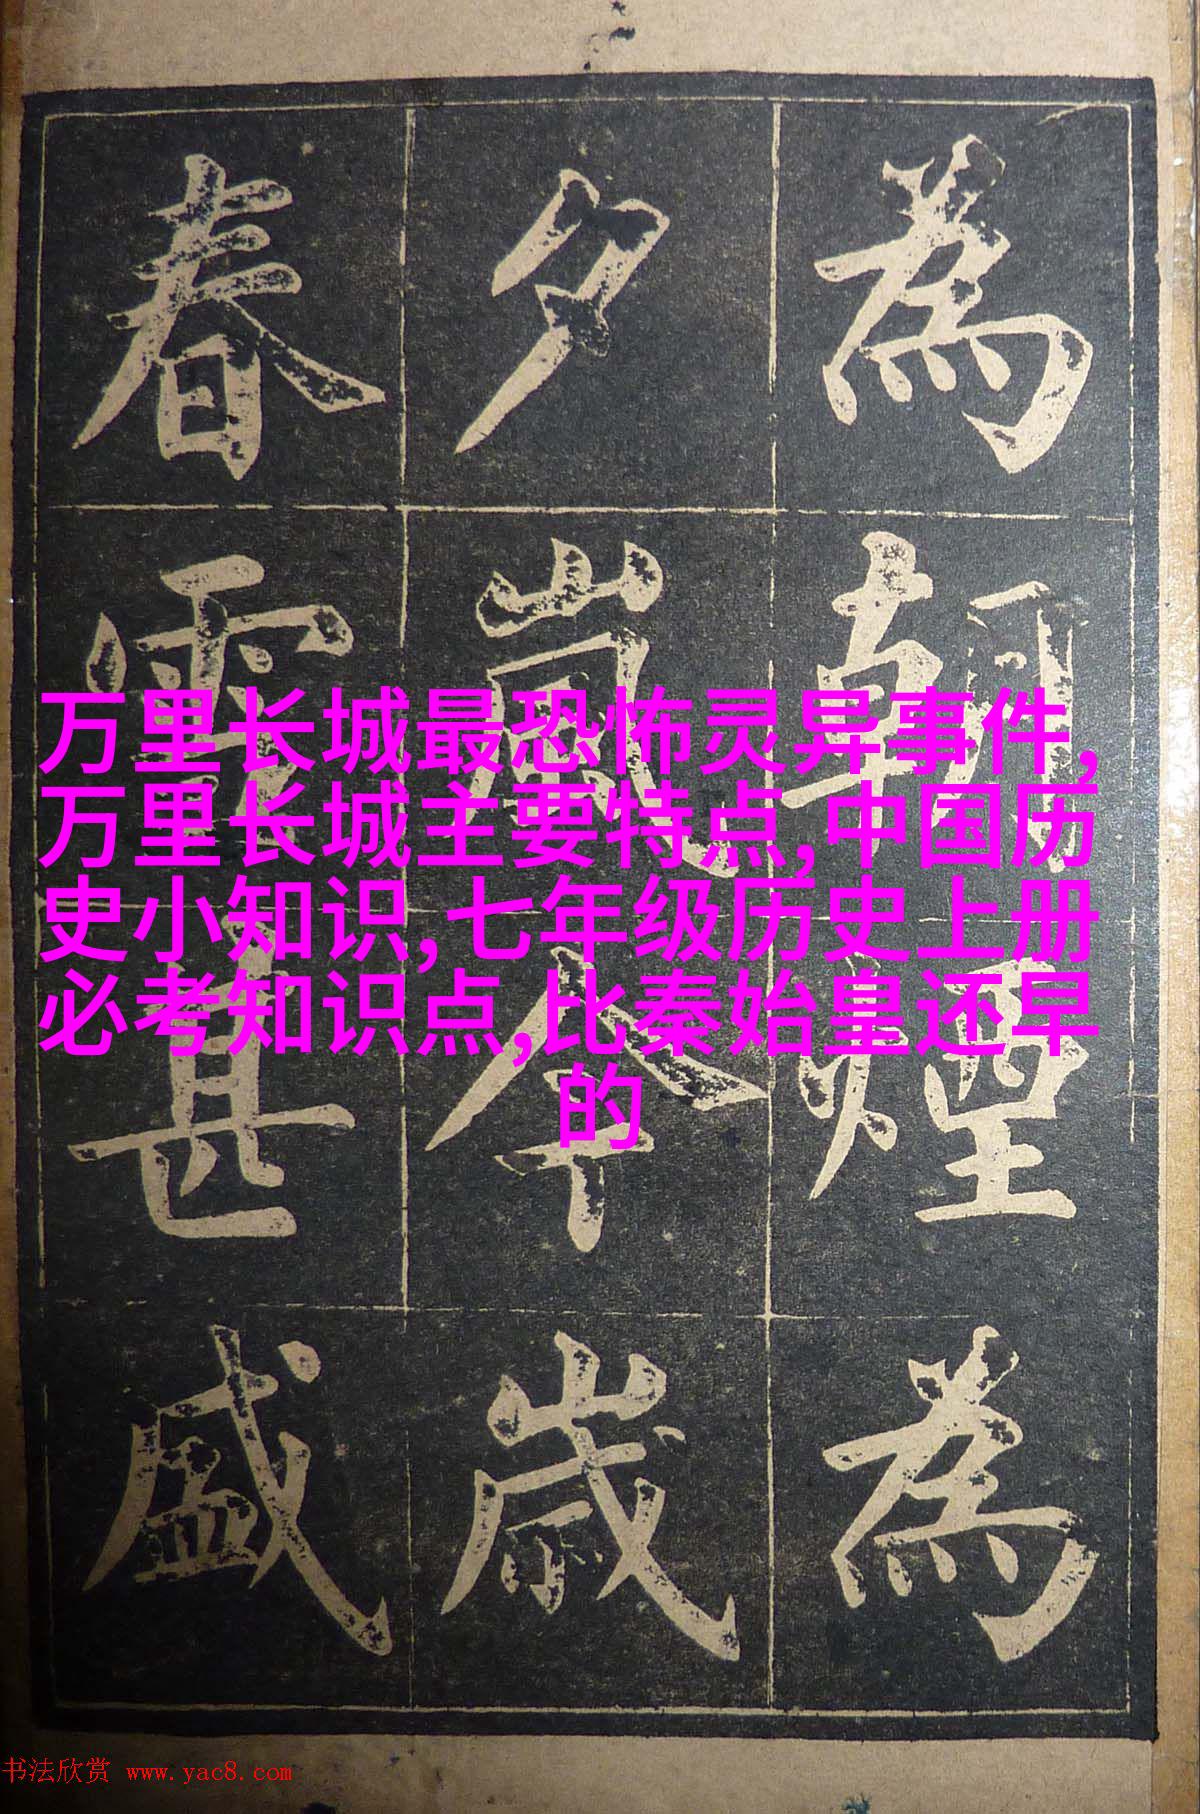 為朝煙為
夕嵐今歲
春雪甚盛
万里长城最恐怖灵异事件,
万里长城主要特点,中国历
史小知识,七年级历史上册
必考知识点,比秦始皇还早
的
书法欣赏 www.yac8.com